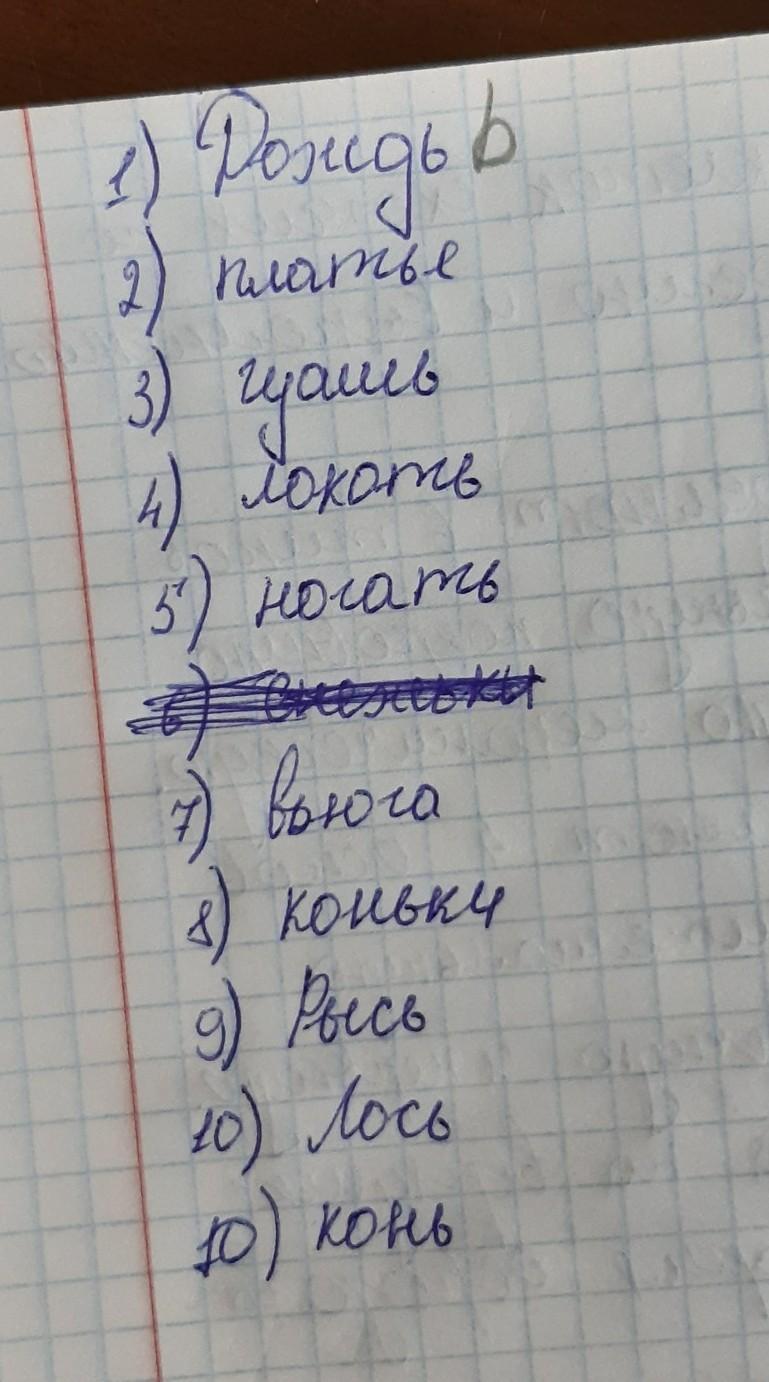 1) Дождь ь
2) платье
3) гуашь
4) локоть
5) ногать
7) Вьюга
8) коньки
9) Рысь
10) Лось
10) конь